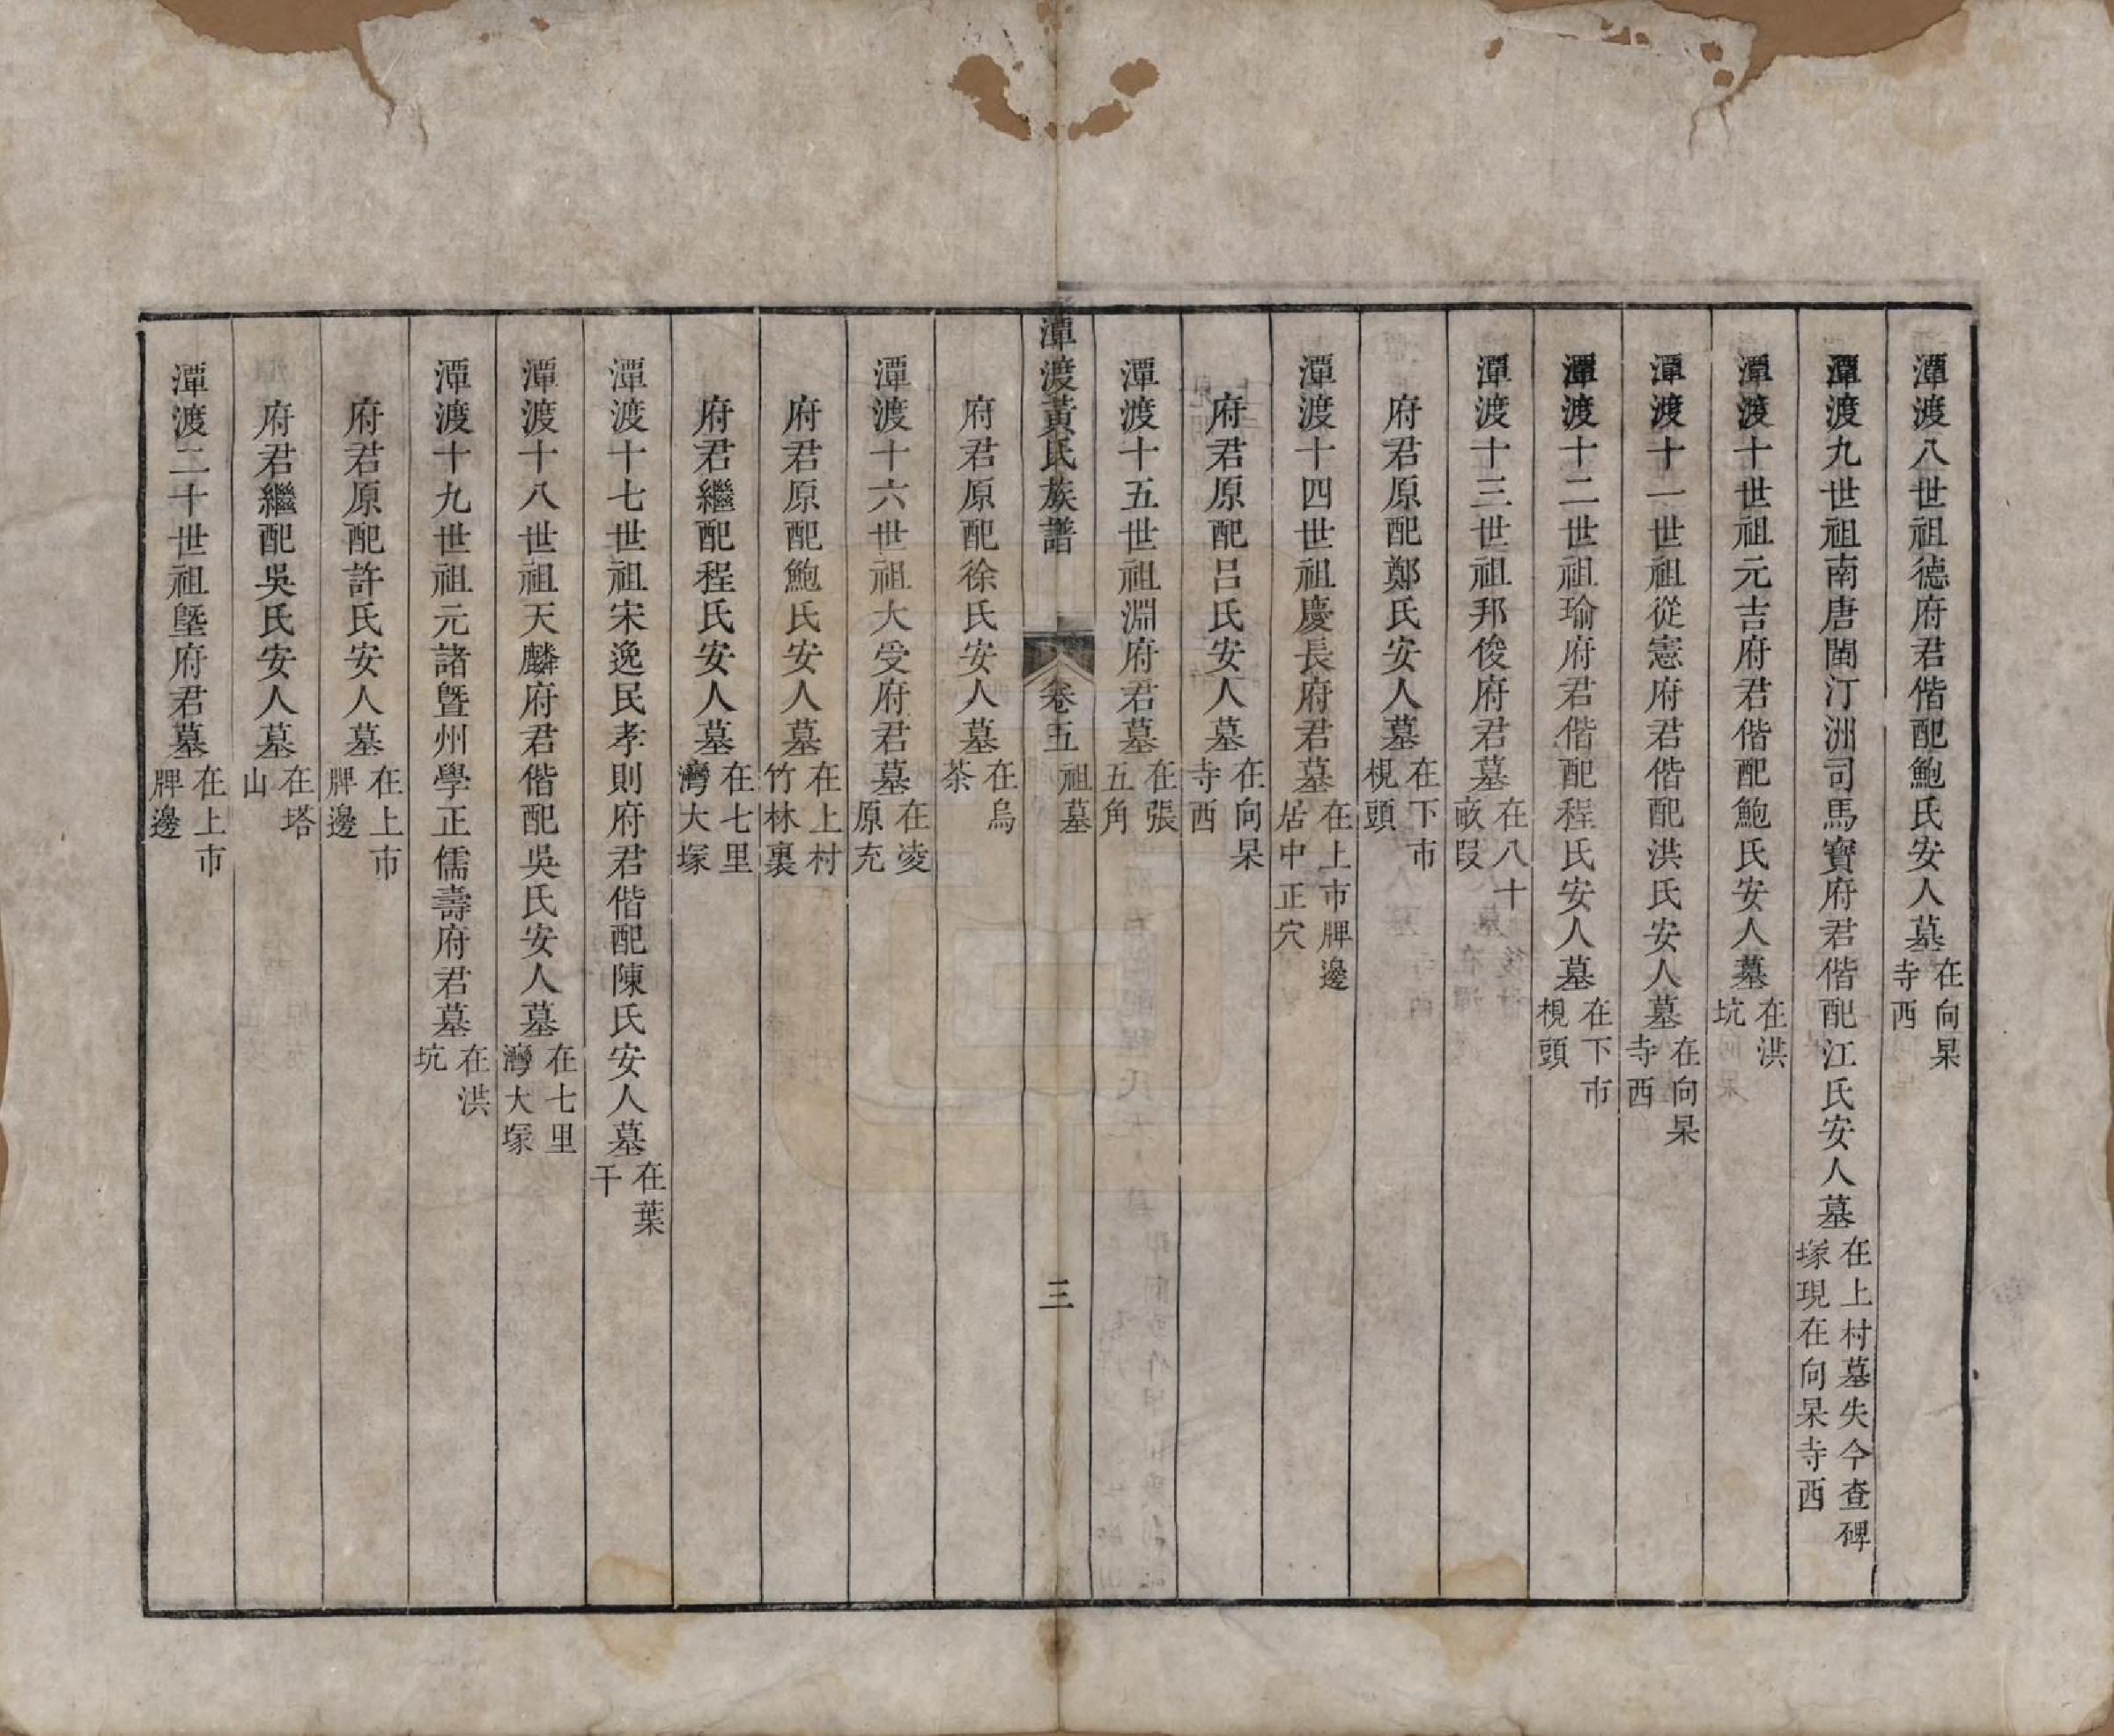 潭渡八世祖德府君偕配鮑氏安人墓在向杲寺西
潭渡九世祖南唐閩汀洲司馬寶府君偕配江氏安人墓在上村墓失今查碑塚現在向杲寺西
潭渡十世祖元吉府君偕配鮑氏安人墓在洪坑
潭渡十一世祖從憲府君偕配洪氏安人墓在向杲寺西
潭渡十二世祖瑜府君偕配程氏安人墓在下市梘頭
潭渡十三世祖邦俊府君墓在八十畝段
府君原配鄭氏安人墓在下市梘頭
潭渡十四世祖慶長府君墓在上市牌邊居中正穴
府君原配呂氏安人墓在向杲寺西
潭渡十五世祖淵府君墓在張五角
潭渡黃氏族譜 卷五 祖墓 三
府君原配徐氏安人墓在烏茶
潭渡十六世祖大受府君墓在凌原充
府君原配鮑氏安人墓在上村竹林裏
府君繼配程氏安人墓在七里灣大塚
潭渡十七世祖宋逸民孝則府君偕配陳氏安人墓在葉干
潭渡十八世祖天麟府君偕配吳氏安人墓在七里灣大塚
潭渡十九世祖元諸暨州學正儒壽府君墓在洪坑
府君原配許氏安人墓在上市牌邊
府君繼配吳氏安人墓在塔山
潭渡二十世祖塈府君墓在上市牌邊